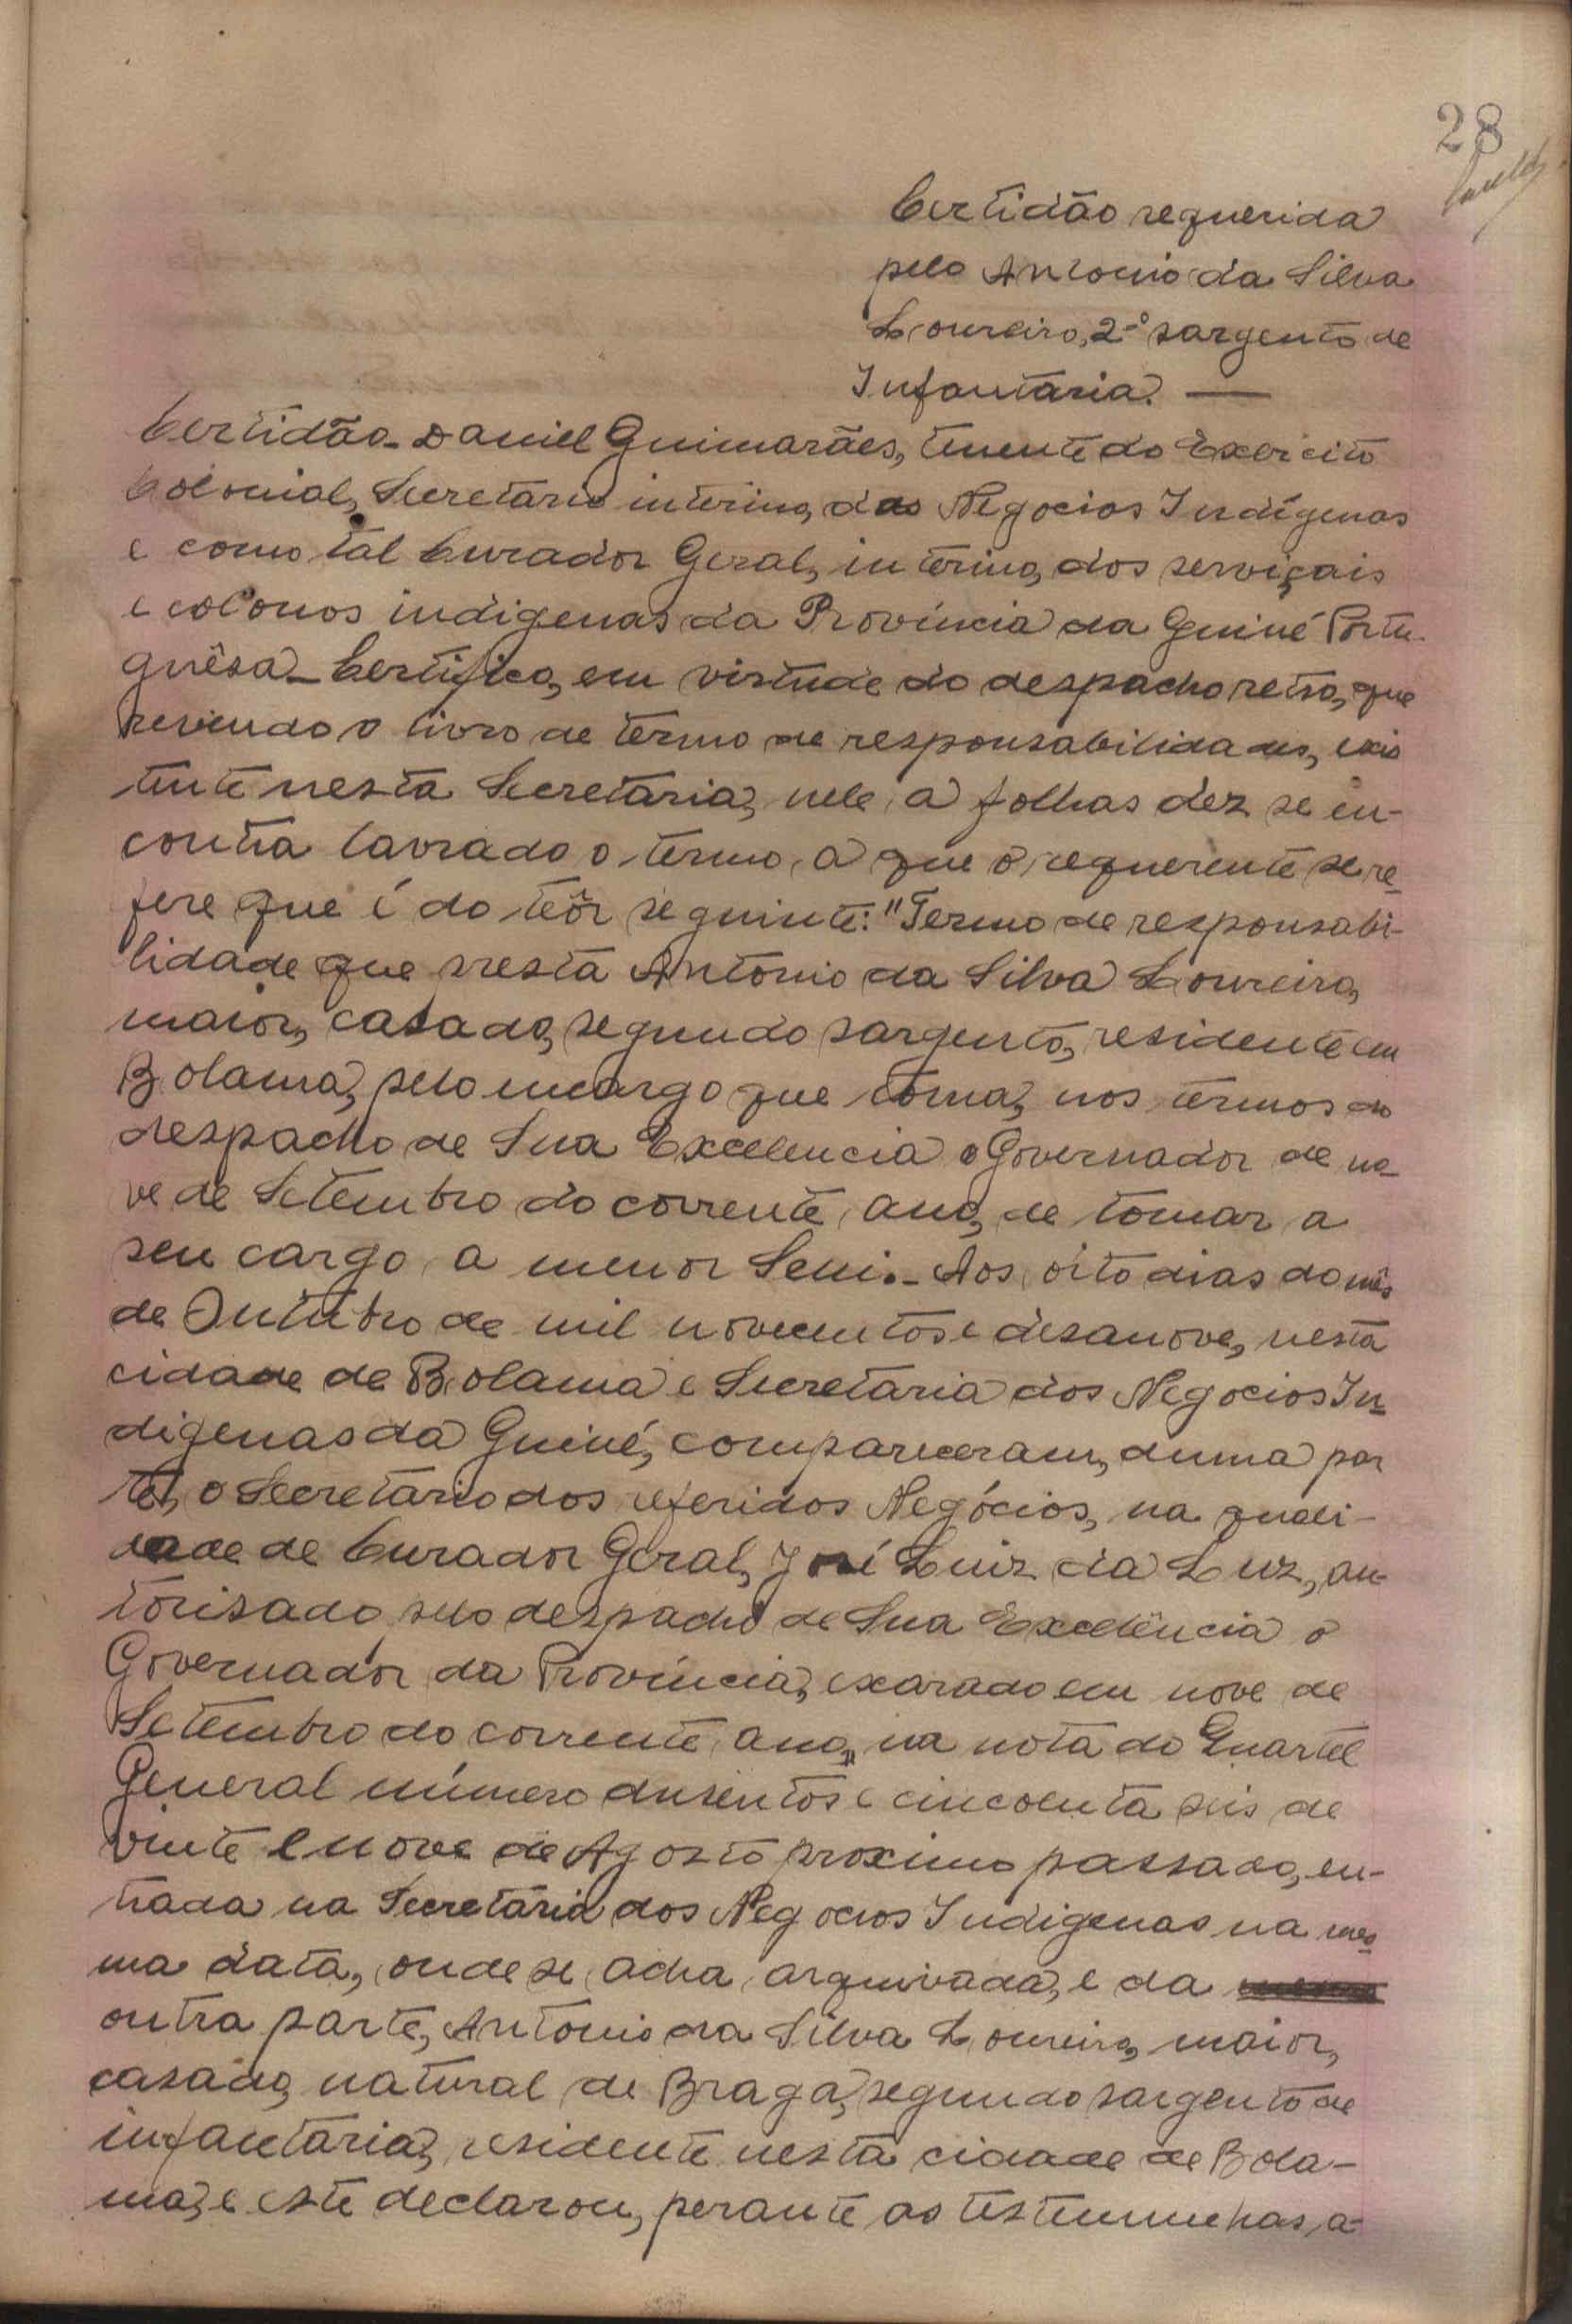 28
Certidão requerida
pelo Antonio da Silva
Loureiro, 2º sargento de
Infantaria. —
Certidão - Daniel Guimarães, tenente do Exercito
Colonial, Secretario interino, dos Negocios Indígenas
e como tal Curador Geral, interino, dos serviçais
e colonos indigenas da Província da Guiné Portu-
guêsa - Certifico, em virtude do despacho retro, que
revendo o livro de termo de responsabilidades, exis
tente nesta Secretaria, nele, a folhas dez se en-
contra lavrado o termo, a que o requerente se re-
fere que é do teôr seguinte: "Termo de responsabi-
lidade que presta António da Silva Loureiro,
maior, casado, segundo sargento, residente em
Bolama, pelo encargo que toma, nos termos do
despacho de Sua Excelencia o Governador de no-
ve de Setembro do corrente ano, de tomar a
seu cargo a menor Seni. - Aos oito dias do mês
de Outubro de mil novecentos e desanove, nesta
cidade de Bolama e Secretaria dos Negocios In-
digenas da Guiné, compareceram, duma par
te, o Secretario dos referidos Negócios, na quali-
dade de Curador Geral, José Luiz da Luz, au-
torisado pelo despacho de Sua Excelência o
Governador da Província, exarado em nove de
Setembro do corrente ano, na nota do Quartel
General número dusentos e cincoenta seis de
vinte e nove de Agosto proximo passado, en-
trada na Secretária dos Negocios Indigenas na mes-
ma data, onde se acha arquivada, e da
outra parte, António da Silva Loureiro, maior,
casado, natural de Braga, segundo sargento de
infantaria, residente nesta cidade de Bola-
ma, e este declarou, perante as testemunhas, a-